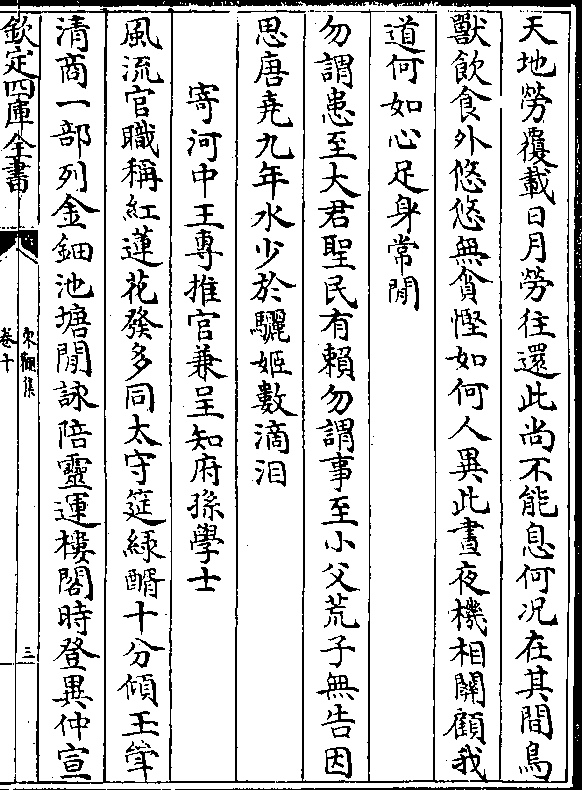 天地勞覆載日月勞往還此尚不能息何况在其間鳥
獸飲食外悠悠無貪慳如何人異此晝夜機相關顧我
道何如心足身常閒
勿謂患至大君聖民有賴勿謂事至小父荒子無告因
思唐堯九年水少於驪姬數滴泪
寄河中王專推官兼呈知府孫學士
風流官職稱紅蓮花發多同太守筵綠醑十分傾玉斝
清商一部列金鈿池塘閒詠陪靈運樓閣時登異仲宣
欽定四庫全書
東觀集
卷十
三